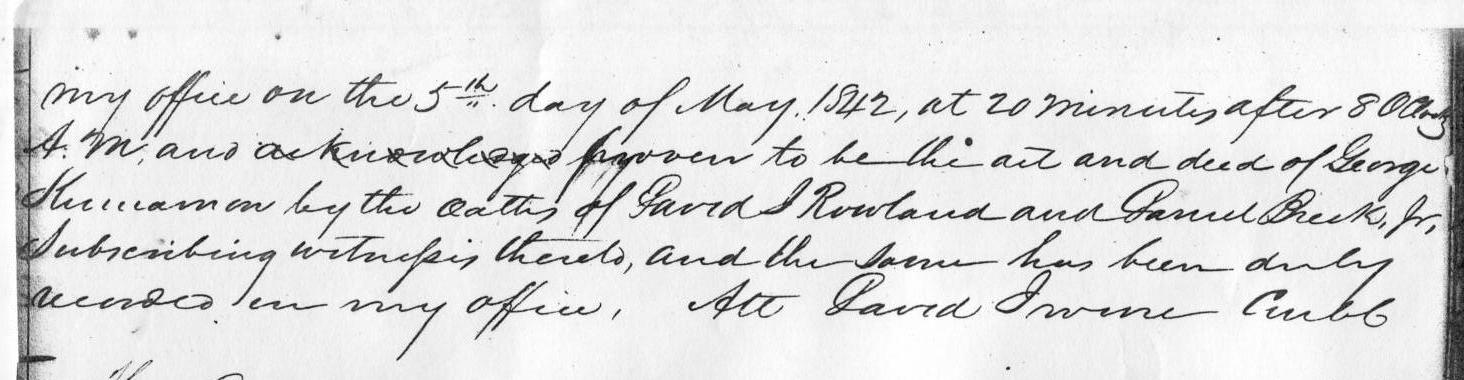 my office on the 5th day of May. 1842, at 20 minutes after 8 OClock
A. M. and acknowledged proven to be the act and deed of George
by the oaths of David I Rowland and Daniel Breck, Jr,
Subscribing witnesses thereto, and the same has been duly
recorded in my office. Att David Irvine